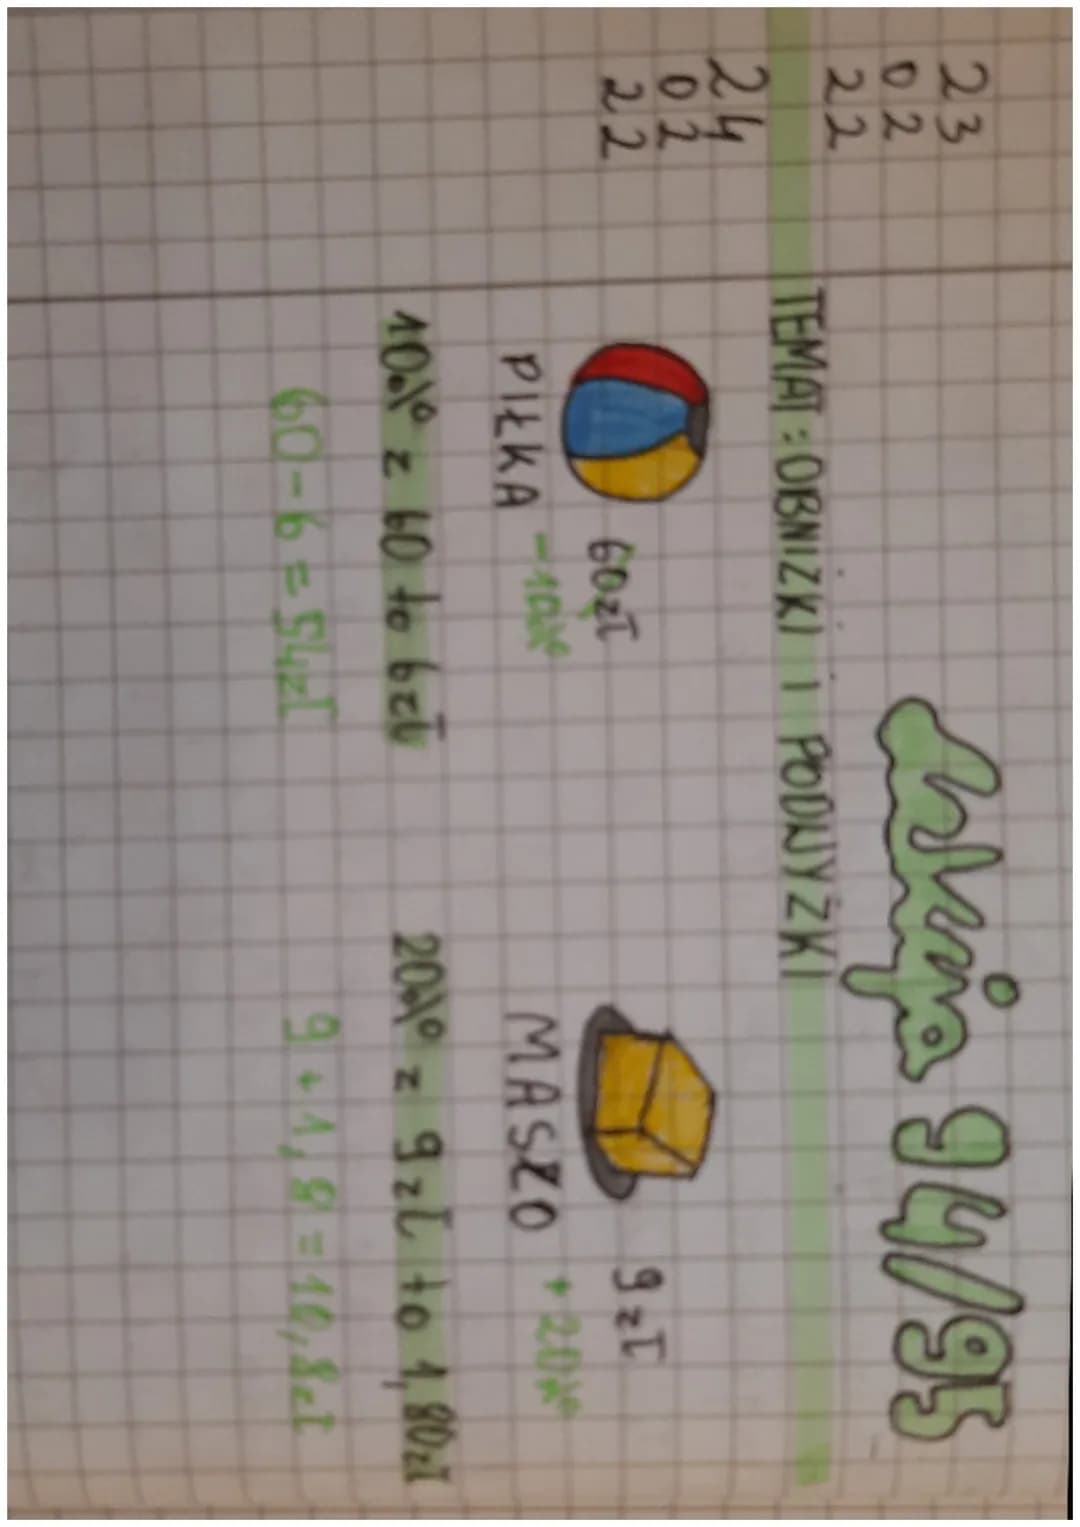 23
02
22
Lekcja 94/95
TEMAT: OBNIŻKI I PODWYŻKI
24
02
22
60zł
9zł
PIŁKA
-10%
MASŁO
+20%
10% z 60 to 6zł
20% z 9zł to 1,80zł
60-6=54zł
9+1,8=10,8zł